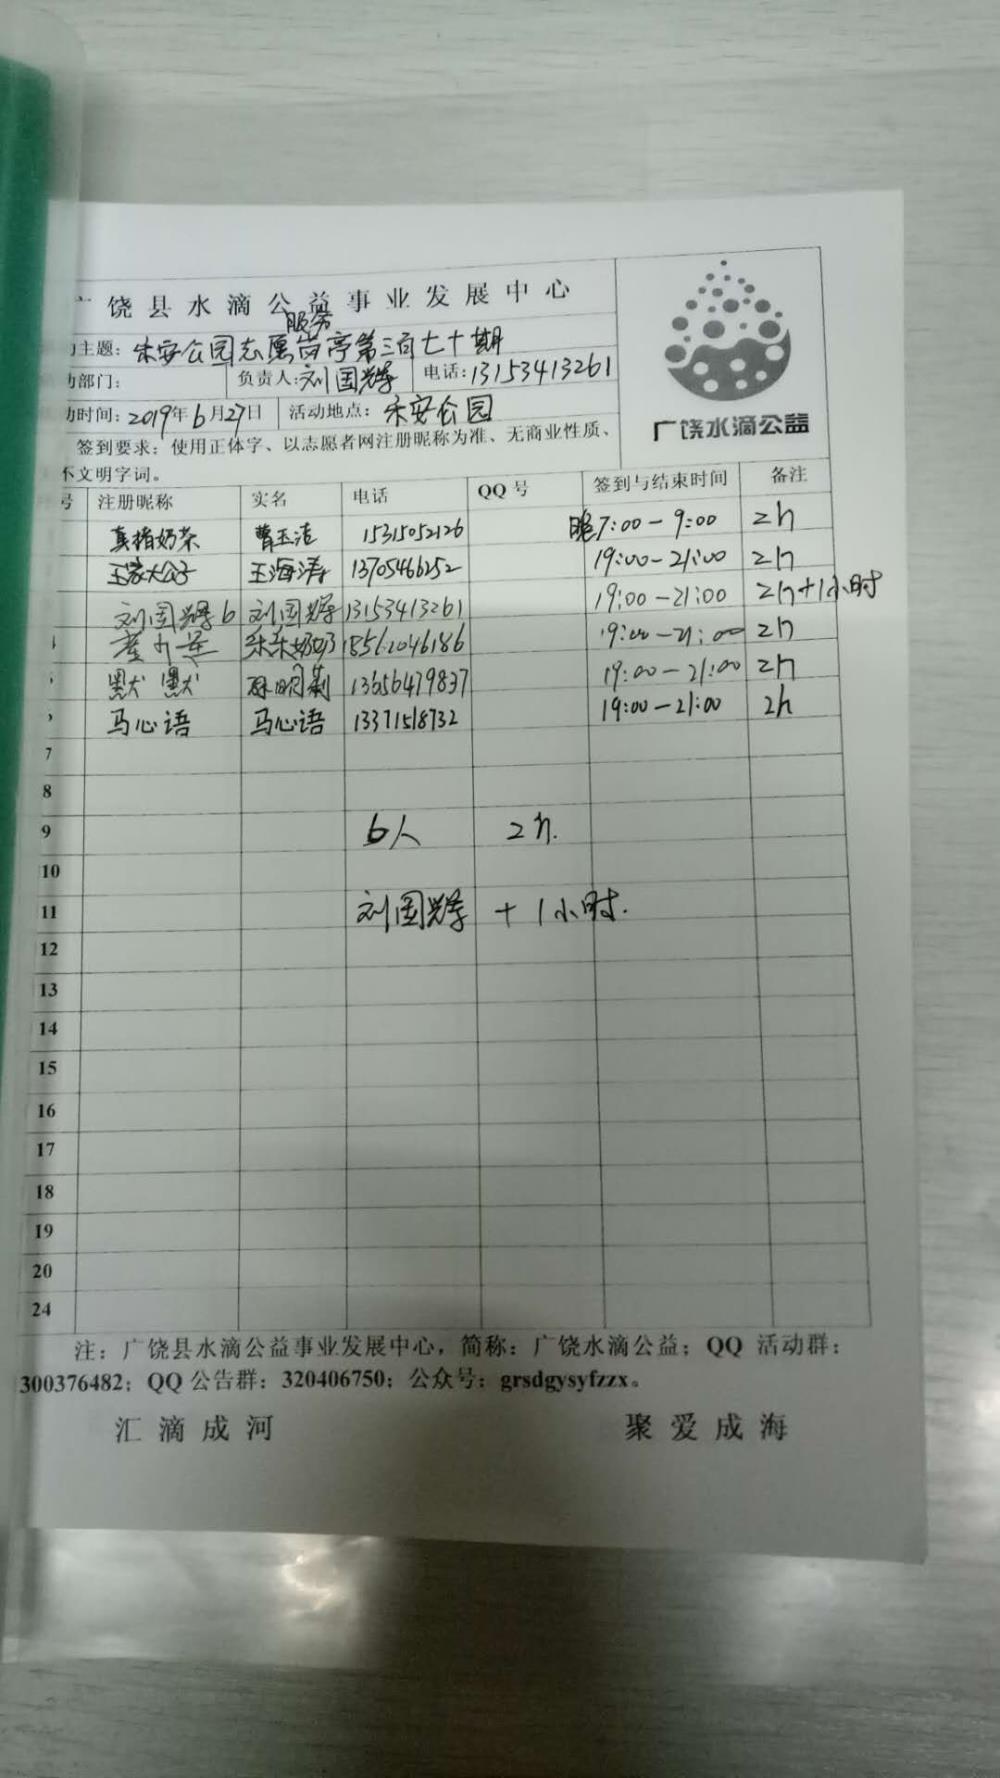 广饶县水滴公益事业发展中心
主题：乐安公园志愿服务岗亭第三百七十期
动部门： 负责人：刘国辉 电话：13153413261
动时间：2019年6月27日 活动地点：乐安公园
签到要求：使用正体字、以志愿者网注册昵称为准、无商业性质、
不文明字词。
广饶水滴公益
号 注册昵称 实名 电话 QQ号 签到与结束时间 备注
真猪奶茶 曹玉洁 15315052126 晚7:00-9:00 2h
王家大公子 王海涛 13705466252 19:00-21:00 2h
刘国辉6 刘国辉 13153413261 19:00-21:00 2h+1小时
乐乐奶奶 18562046186 19:00-21:00 2h
默默 13656479837 19:00-21:00 2h
马心语 马心语 13371518732 19:00-21:00 2h
7
8
9 6人 2h.
10
11 刘国辉 +1小时.
12
13
14
15
16
17
18
19
20
24
注：广饶县水滴公益事业发展中心，简称：广饶水滴公益；QQ 活动群：
300376482；QQ公告群：320406750；公众号：grsdgysyfzzx。
汇滴成河 聚爱成海